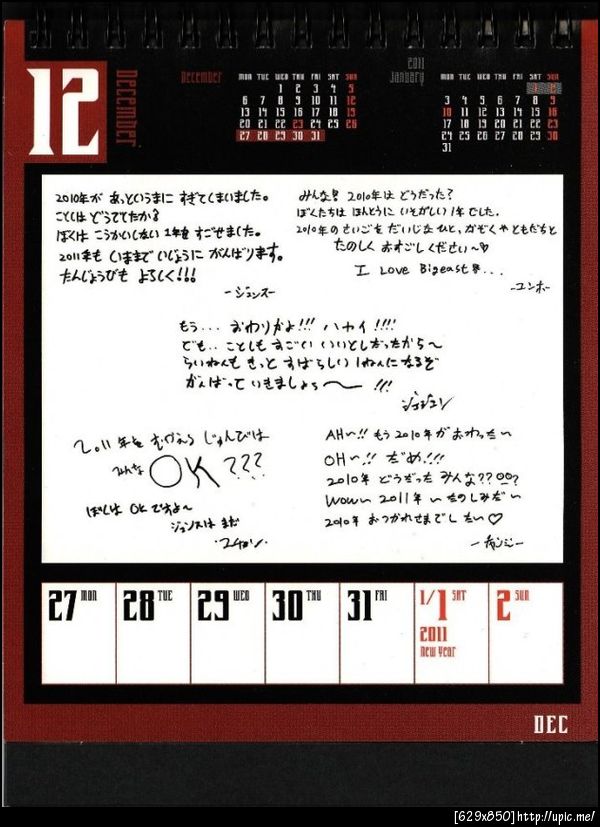 12
December
December
MON TUE WED THU FRI SAT SUN
1 2 3 4 5
6 7 8 9 10 11 12
13 14 15 16 17 18 19
20 21 22 23 24 25 26
27 28 29 30 31
2011
January
MON TUE WED THU FRI SAT SUN
1 2
3 4 5 6 7 8 9
10 11 12 13 14 15 16
17 18 19 20 21 22 23
24 25 26 27 28 29 30
31
2010年が あっというまに すぎてしまいました。
ことしは どうでてたか?
ぼくは こうかいしない 1年を すごせました。
2011年も いままで いじょうに がんばります。
たんじょうびも よろしく!!!
-ジュンス-
みんな 2010年は どうだった?
ぼくたちは ほんとうに いそがしい 1年でした。
2010年のさいごを だいじな ひと、かぞくや ともだちと
たのしく おすごしください〜♡
I Love Bigeast...
-ユンホ-
もう... おわりかよ!!! ハヤイ!!!!
でも.. ことしも すごい いいとしだったから〜
らいねんも きっと すばらしい 1ねんに なるぞ
がんばって いきましょぅ〜 !!!
ジェジュン
2011年を むかえる じゅんびは
みんな OK???
ぼくは OK ですよ〜
ジュンスは まだ
ユチョン
AH〜!! もう 2010年が おわった〜
OH〜!! だめ!!!
2010年 どうだった みんな??
wow〜 2011年 〜 たのしみだ〜
2010年 おつかれさまでした〜♡
-チャンミン-
27 MON
28 TUE
29 WED
30 THU
31 FRI
1/1 SAT
2011
New Year
2 SUN
DEC
[629x850]http://upic.me/